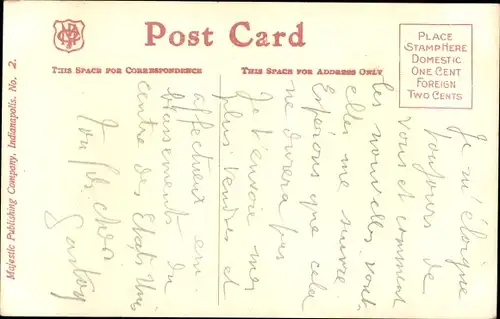 Post Card
THIS SPACE FOR CORRESPONDENCE
THIS SPACE FOR ADDRESS ONLY
PLACE
STAMP HERE
DOMESTIC
ONE CENT
FOREIGN
TWO CENTS
Majestic Publishing Company, Indianapolis. No. 2.
Je m'éloigne
toujours de
vous et comment
les nouvelles vont
elles me suivre.
Espérons que cela
ne durera pas
Je t'envoie mes
plus tendres et
affectueux em-
brassements du
centre des Etats Unis
Ton fils cher
Gaston